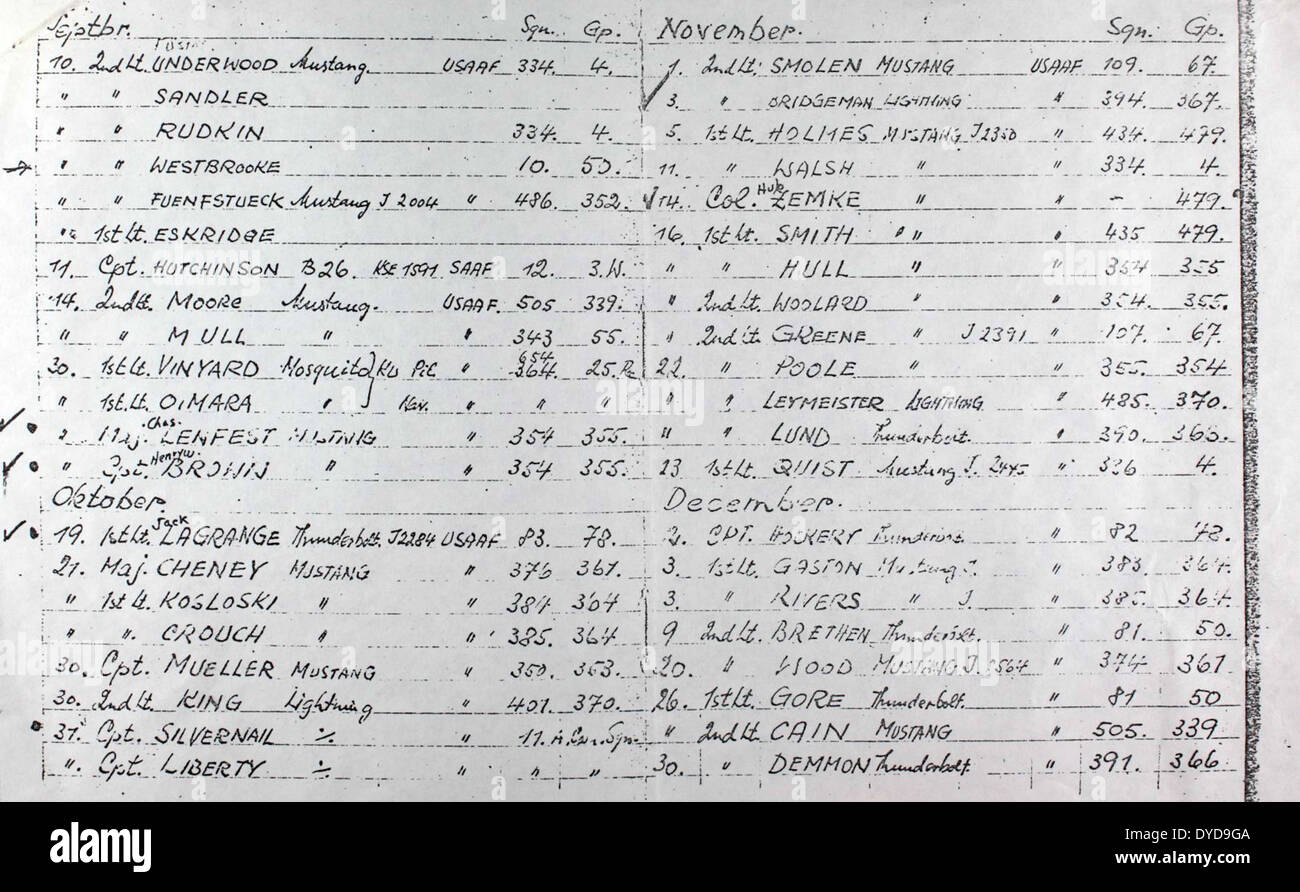 Septbr. Sqn. Gp.
10. 2nd Lt. UNDERWOOD Mustang. USAAF 334. 4.
" " SANDLER
" " RUDKIN 334. 4.
" " WESTBROOKE 10. 50.
" " FUENFSTUECK Mustang J 2004 " 486. 352.
" 1st Lt. ESKRIDGE
11. Cpt. HUTCHINSON B26. KSE 1591 SAAF 12. 3.W.
14. 2nd Lt. MOORE Mustang. USAAF 505 339.
" " MULL " " 343 55.
30. 1st Lt. VINYARD Mosquito " 654 25.
" 1st Lt. OIMARA " Nav. " " "
2 Maj. Chas. LENFEST MUSTANG " 354 355.
" Cpt. Henry W. BROWN " " 354 355.
Oktober.
19. 1st Lt. Jack LAGRANGE Thunderbolt. J2284 USAAF 83. 78.
21. Maj. CHENEY MUSTANG " 376 361.
" 1st Lt. KOSLOSKI " " 384 364
" ". CROUCH " " 385. 364.
30. Cpt. MUELLER MUSTANG " 350. 353.
30. 2nd Lt. KING Lightning " 401. 370.
31. Cpt. SILVERNAIL ./. " 11.
". Cpt. LIBERTY ./. " " "
November. Sqn. Gp.
1. 2nd Lt. SMOLEN MUSTANG USAAF 109. 67.
3. " BRIDGEMAN LIGHTNING " 394. 367.
5. 1st Lt. HOLMES MUSTANG J2350 " 434. 479.
11. " WALSH " " 334. 4.
14. Col. Hub ZEMKE " " - 479.
16. 1st Lt. SMITH " " 435 479.
" " HULL " " 354 355
" 2nd Lt. WOOLARD " " 354. 355.
" 2nd Lt. GREENE " J 2391 " 107. 67.
22. " POOLE " " 355. 354
" " LEYMEISTER LIGHTNING " 485. 370.
" " LUND Thunderbolt. " 390.
23 1st Lt. QUIST Mustang J. 2445 " 336 4.
December.
2. CPT. HOCKERY Thunderbolt " 82 78.
3. 1st Lt. GASTON Mustang J. " 383. 364.
3. " RIVERS " J. " 385. 364.
9 2nd Lt. BRETHEN Thunderbolt. " 81. 50.
20. " WOOD MUSTANG J. 2564 " 374 361
26. 1st Lt. GORE Thunderbolt. " 81 50
" 2nd Lt. CAIN MUSTANG " 505. 339
30. " DEMMON Thunderbolt. " 391. 366
alamy
Image ID: DYD9GA
www.alamy.com